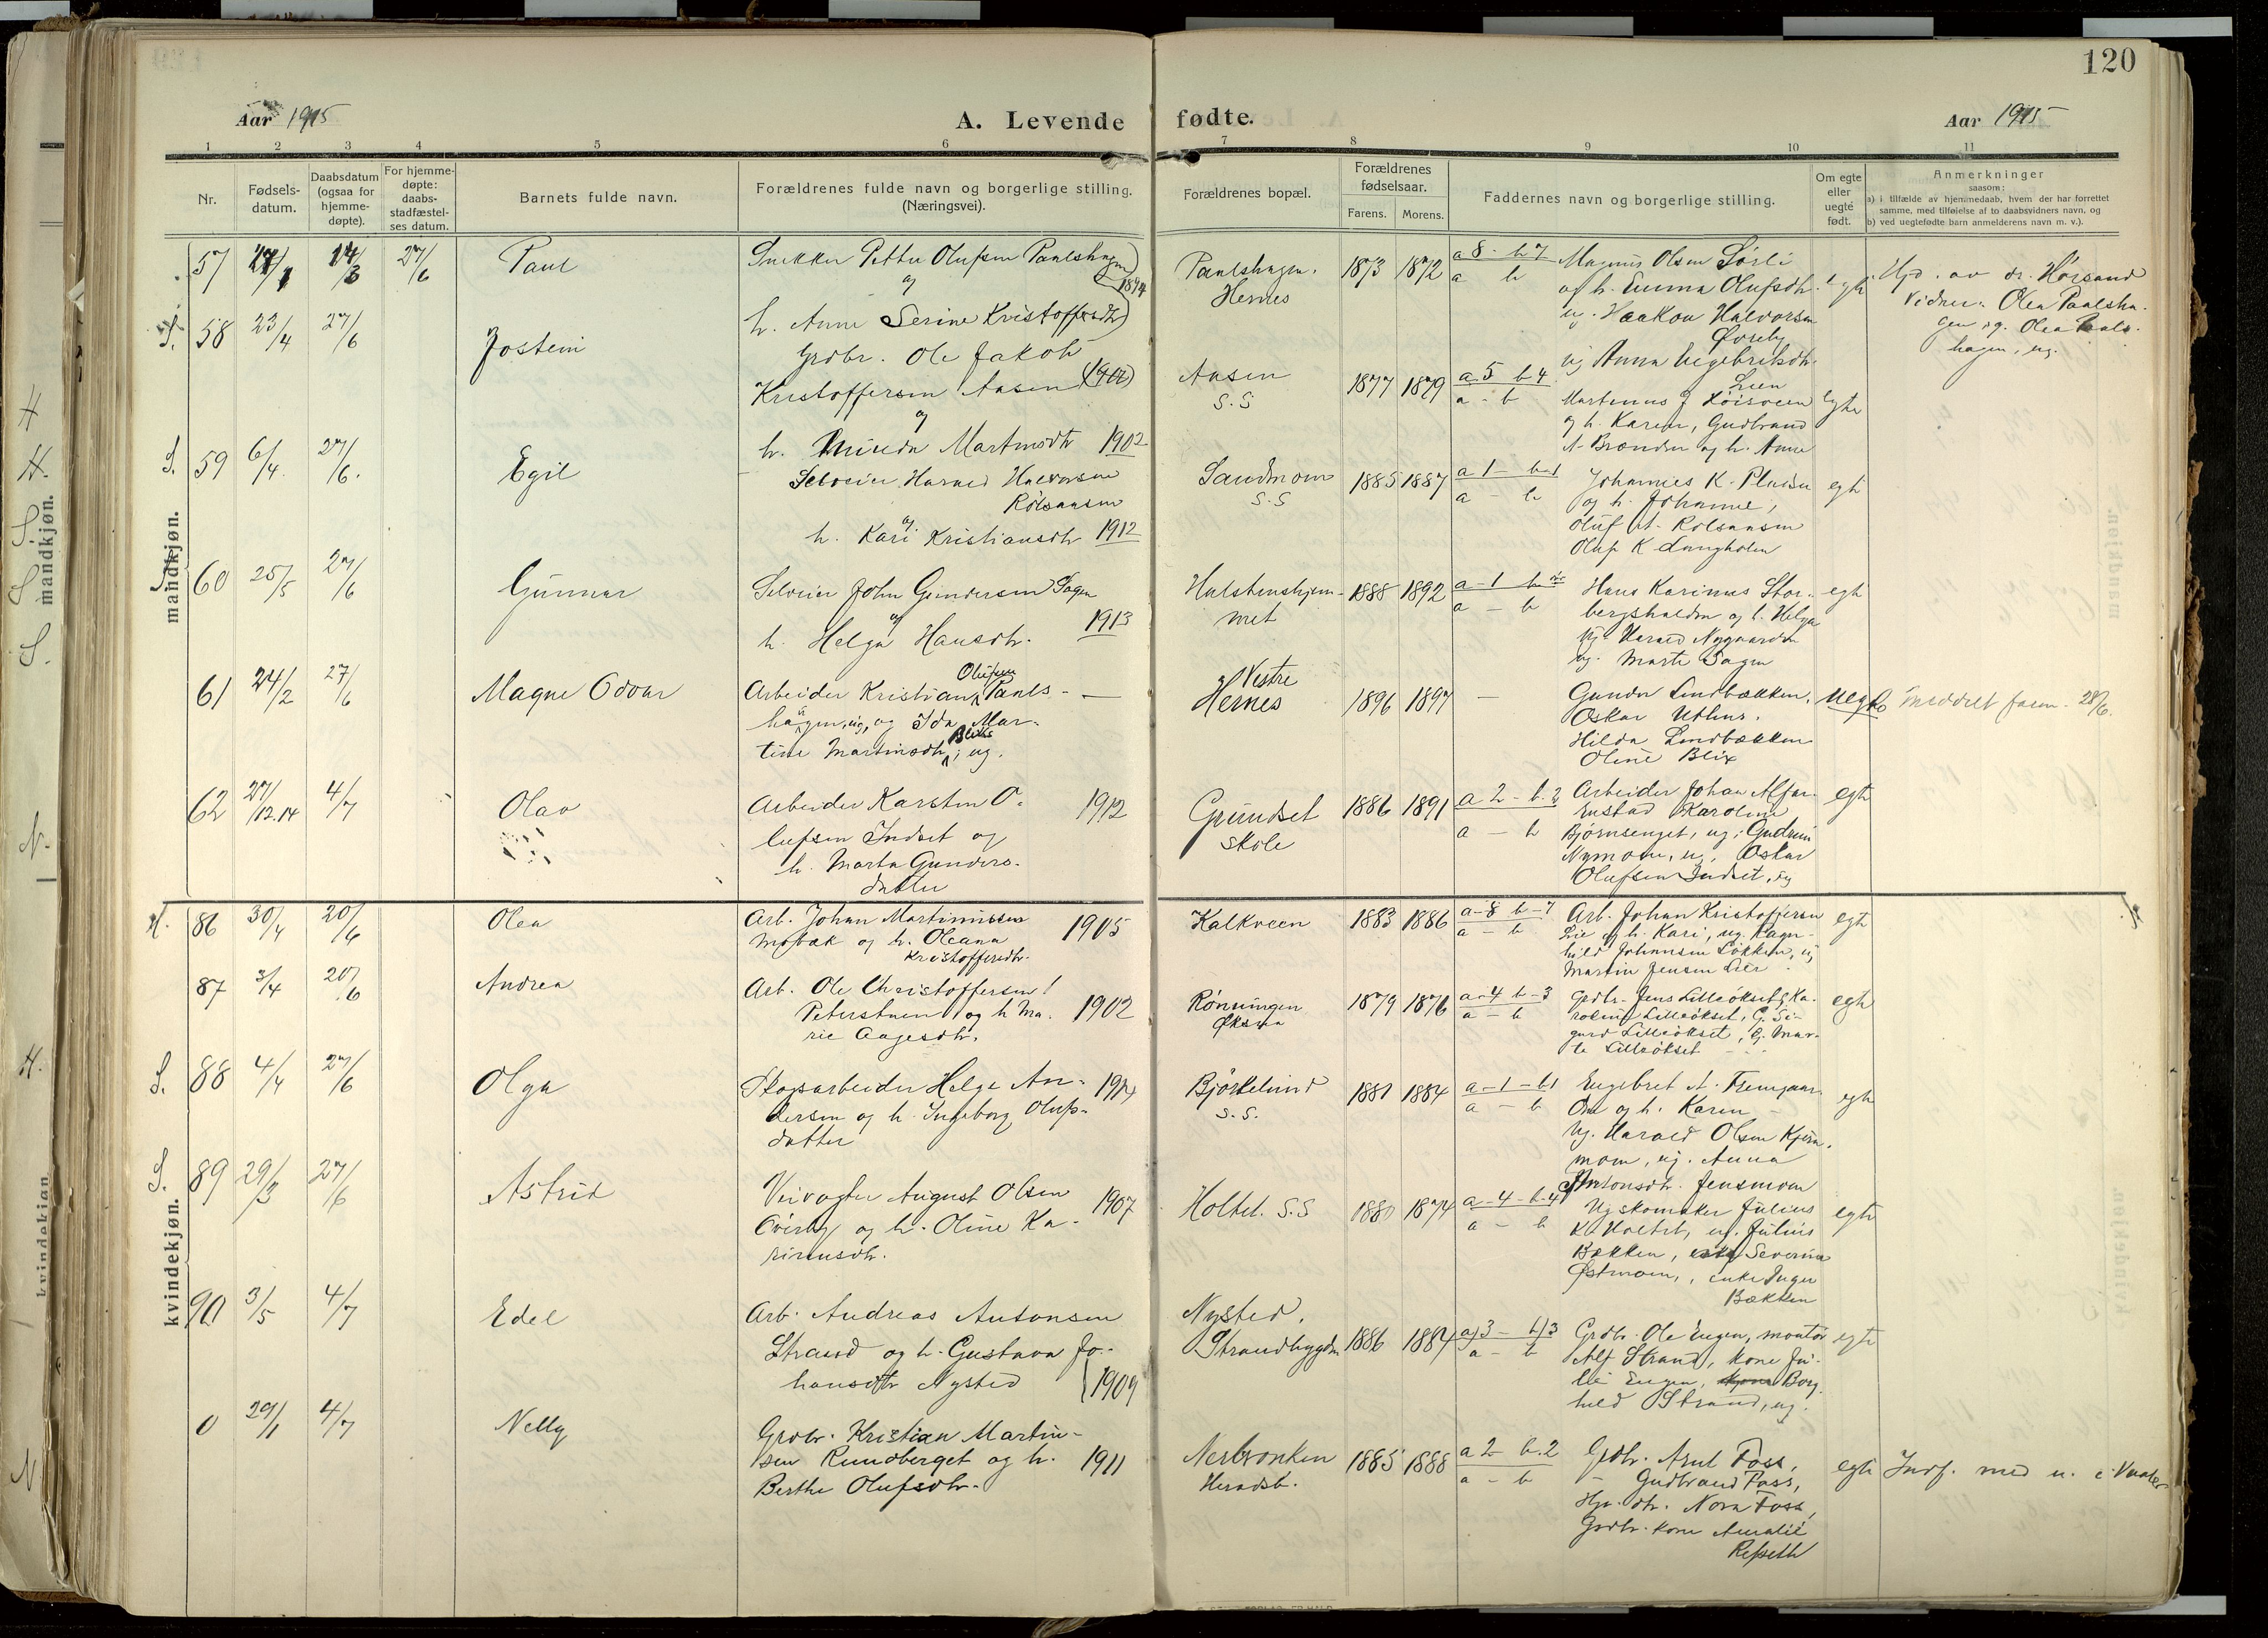 120
Aar 1915
A. Levende fødte.
Aar 1915
1 2 3 4 5 6 7 8 9 10 11
Nr.
Fødsels-
datum.
Daabsdatum
(ogsaa for
hjemme-
døpte).
For hjemme-
døpte:
daabs-
stadfæstel-
ses datum.
Barnets fulde navn.
Forældrenes fulde navn og borgerlige stilling.
(Næringsvei).
Forældrenes bopæl.
Forældrenes
fødselsaar.
Farens. Morens.
Faddernes navn og borgerlige stilling.
Om egte
eller
uegte
født.
Anmerkninger
saasom:
a) i tilfælde av hjemmedaab, hvem der har forrettet
samme, med tilføielse af to daabsvidners navn, og
b) ved uegtefødte barn anmelderens navn m. v.).
mandkjøn.
57 27/1 14/3 27/6 Paul
Snekker Petter Olufsen Paulshagen
og 1894
h. Anne Serine Kristoffersdtr
Paulshagen.
Hernes
1873 1872
a 8 - b 7
a b
Magnus Olsen Sørli
og h. Emma Olufsdtr.
ug. Haakon Halvorsen
Øveby
ug Anna Engebretsdtr.
Lien
egte
Hjd. av dr. Hørsand
Vidner: Olea Paalsha-
gen og Olea Paals-
hagen, ug.
S. 58 23/4 27/6 Jostein
Grdbr. Ole Jakob
Kristoffersen Aasen
og
h. Martinsdtr 1902
Aasen
S.S
1877 1879
a 5 b 4
a - b
Martinus J
og h. Karen, Gudbrand
A. Brænden og h. Anne
egte
S. 59 6/4. 27/6. Egil
Selveier Harald Halvorsen
Rolsansen
og
h. Kari Kristiansdtr 1912
Sandmoen
S.S
1885 1887
a 1 - b 1
a - b
Johannes K.
og h. Johanne,
Oluf H. Rolsansen
Oluf K. Langholen
egte
60 25/5 27/6 Gunnar
Selveier John Gundersen Sagen
og 1913
h. Helga Hansdtr.
Halstenshjem-
met
1888 1892
a - 1 b
a - b
Hans Karinus Stor-
bergshalden og h. Helga
Ug. Harald Nygaarden
ug. Marte Sagen
egte
61 24/2 27/6 Magne Odvar
Olufsen
Arbeider Kristian Pauls- —
hagen, ug, og Ida Mar-
Blix
tine Martinsdtr, ug.
Vestre
Hernes
1896 1897
—
Gunder Lindbækken,
Oskar Uthus.
Hilda Lindbækken
Oline Blix
uegte
meddelt faren 28/6.
62 27/12.14 4/7 Olav
Arbeider Karsten O- 1912
lufsen Indset og
h. Marta Gunders-
datter
Grundset
skole
1886 1891
a 2 - b. 2
a - b
Arbeider Johan Alfar-
Enstad Karoline
Bjørnsenget, ug; Gudrun
Nymoen, ug, Oskar
Olufsen Indset, ug
egte
kvindekjøn.
H. 86 30/4 20/6 Olea
Arb. Johan Martinussen
Mobæk og h. Oleana 1905
Kristoffersdtr.
Kalkveen
1883 1886
a - 8 b - 7
a - b
Arb. Johan Kristoffersen
Lie og h. Kari, ug. Ragn-
hild Johannsen Løkken, ug
Martin Jensen Lier
egte
87 3/4 20/6 Andrea
Arb. Ole Christoffersen!
Peterstuen og h Ma- 1902
rie Aagesdtr.
Rønningen
Øksna
1879 1876
a - 4 b - 3
a - b
Grdbr. Jens Lilleökset, Ka-
roline Lilleökset, G. Si-
gurd Lilleökset, G. Mar-
te Lilleökset
egte
S. 88 4/4 27/6 Olga
Skogsarbeider Helge An- 1914
dersen og h. Ingeborg Olufs-
datter
Bjørkelund
S.S.
1881 1884
a - 1 - b 1
a - b
Engebret A. Fremgaar-
den og h. Karen
Ug. Harald Olsen Kjern-
moen, ug. Anna
Antonsdtr. Jensmoen
egte
S. 89 29/3 27/6 Astrid
Veivogter August Olsen 1907
Overby og h. Oline Ka-
rinusdtr.
Holtet. S.S
1880 1874
a - 4 - b - 4
a - b
Ug skomaker Julius
K Holtet, ug. Julius
Bækken, Severine
Østmoen, enke Inger
Bækken
egte
90 3/5 4/7 Edel
Arb. Andreas Antonsen
Strand og h. Gustava Jo-
hansdtr Nysted 1909
Nysted,
Strandbygden
1886 1884
a) 3 - b) 3
a - b
Grdbr. Ole Engen, montör
Alf Strand, kone Ju-
lie Engen, Borg-
hild Strand, ug.
egte
0 29/1 4/7 Nelly
Grdbr. Kristian Martin-
sen Rundberget og h. 1911
Berthe Olufsdtr.
Nerbronken
Heradsb.
1885 1888
a 2 b. 2
a - b
Grdbr. Arnt Foss,
Gudbrand Foss,
Hpr. dtr. Nora Foss,
Grdbr. kone Amalie
Refseth
egte
Indf. med n. i Vaaler